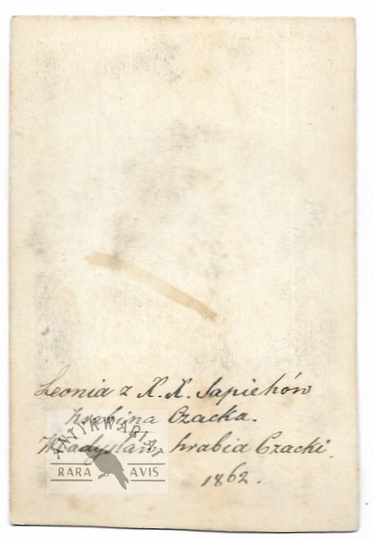 Leonia z X. X. Sapiehów
hrabina Czacka.
Władysław, hrabia Czacki.
1862.
ANTYKWARIAT
RARA AVIS